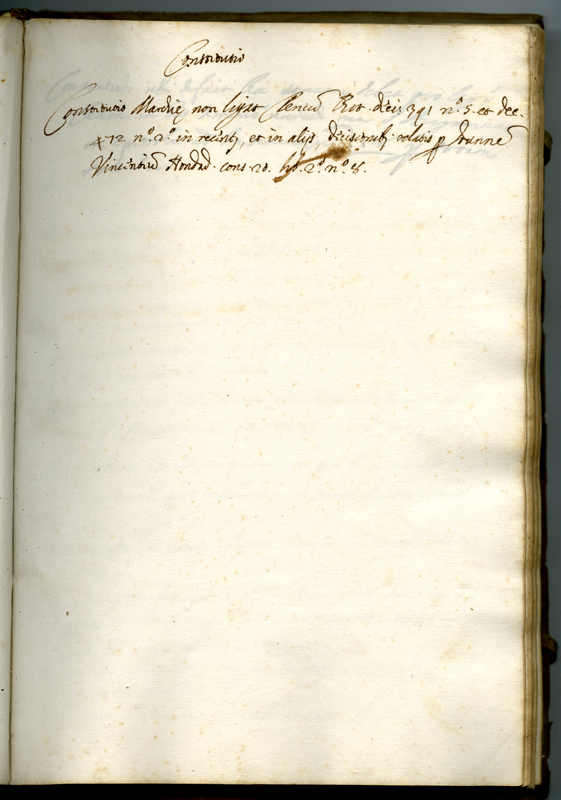 Constitutio
Constitutio Marchię non ligat Clericũ Rot. decis. 391 nº. 5. et dec.
472 nº. 2º. in recẽt, et in alijs, decis. relatis p Joannẽ
Vincentiũ Hondad. cons. 20. lib. 2º. nº. 8.